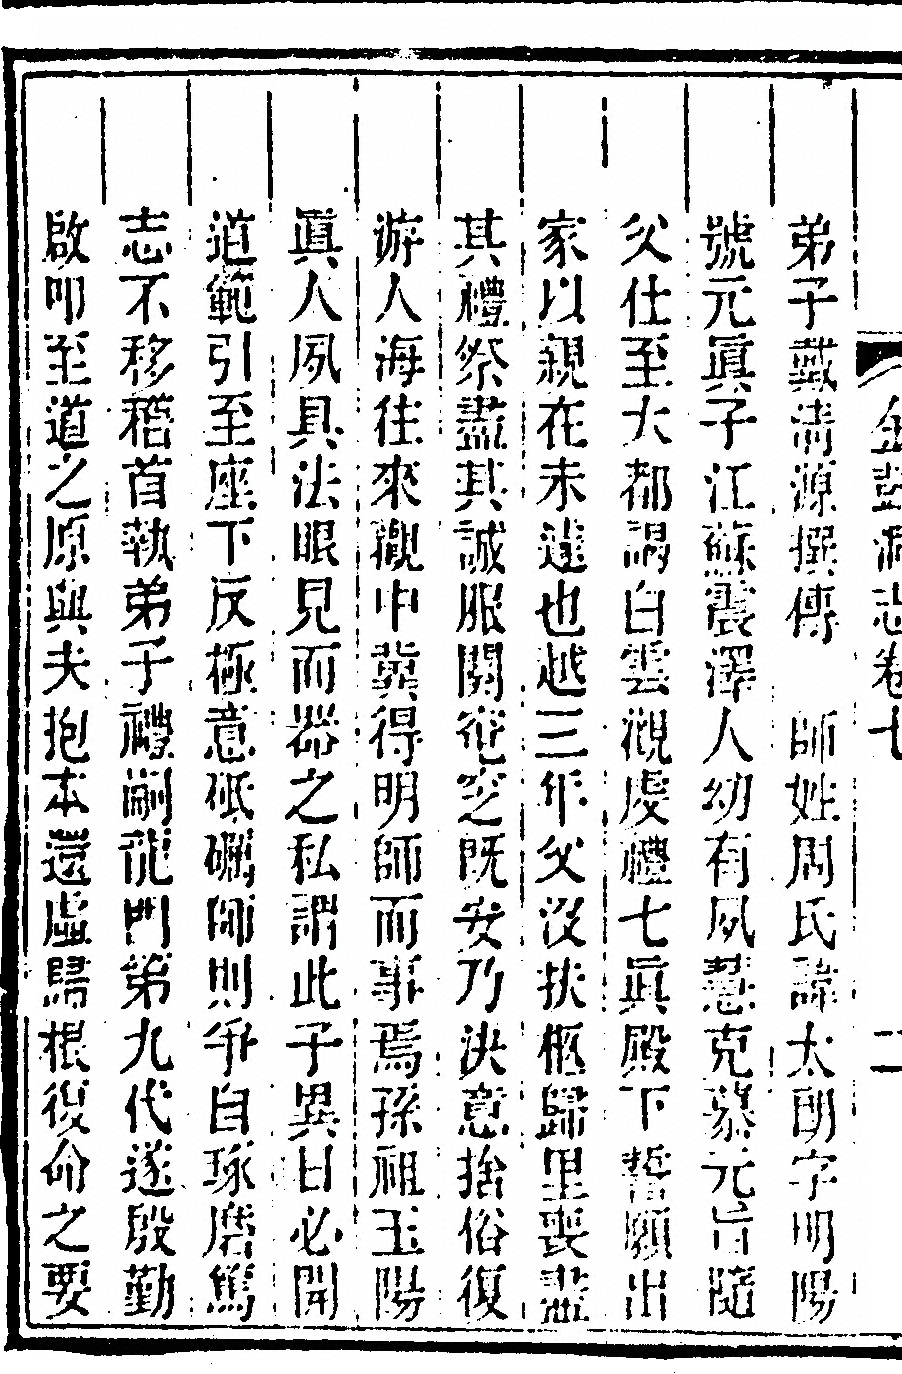 金蓋洞志卷七　二
弟子戴清源撰傳　師姓周氏諱太朗字明陽
號元眞子江蘇震澤人幼有夙慧克慕元旨隨
父仕至大都謁白雲觀虔禮七眞殿下誓願出
家以親在未遑也越三年父沒扶柩歸里喪葬
其禮祭盡其誠服闋窀穸既安乃決意捨俗復
游人海往來觀中冀得明師而事焉孫祖玉陽
眞人夙具法眼見而器之私謂此子異日必開
道範引至座下反極意砥礪師則爭自琢磨篤
志不移稽首執弟子禮嗣龍門第九代遂殷勤
啟叩至道之原與夫抱本還虛歸根復命之要